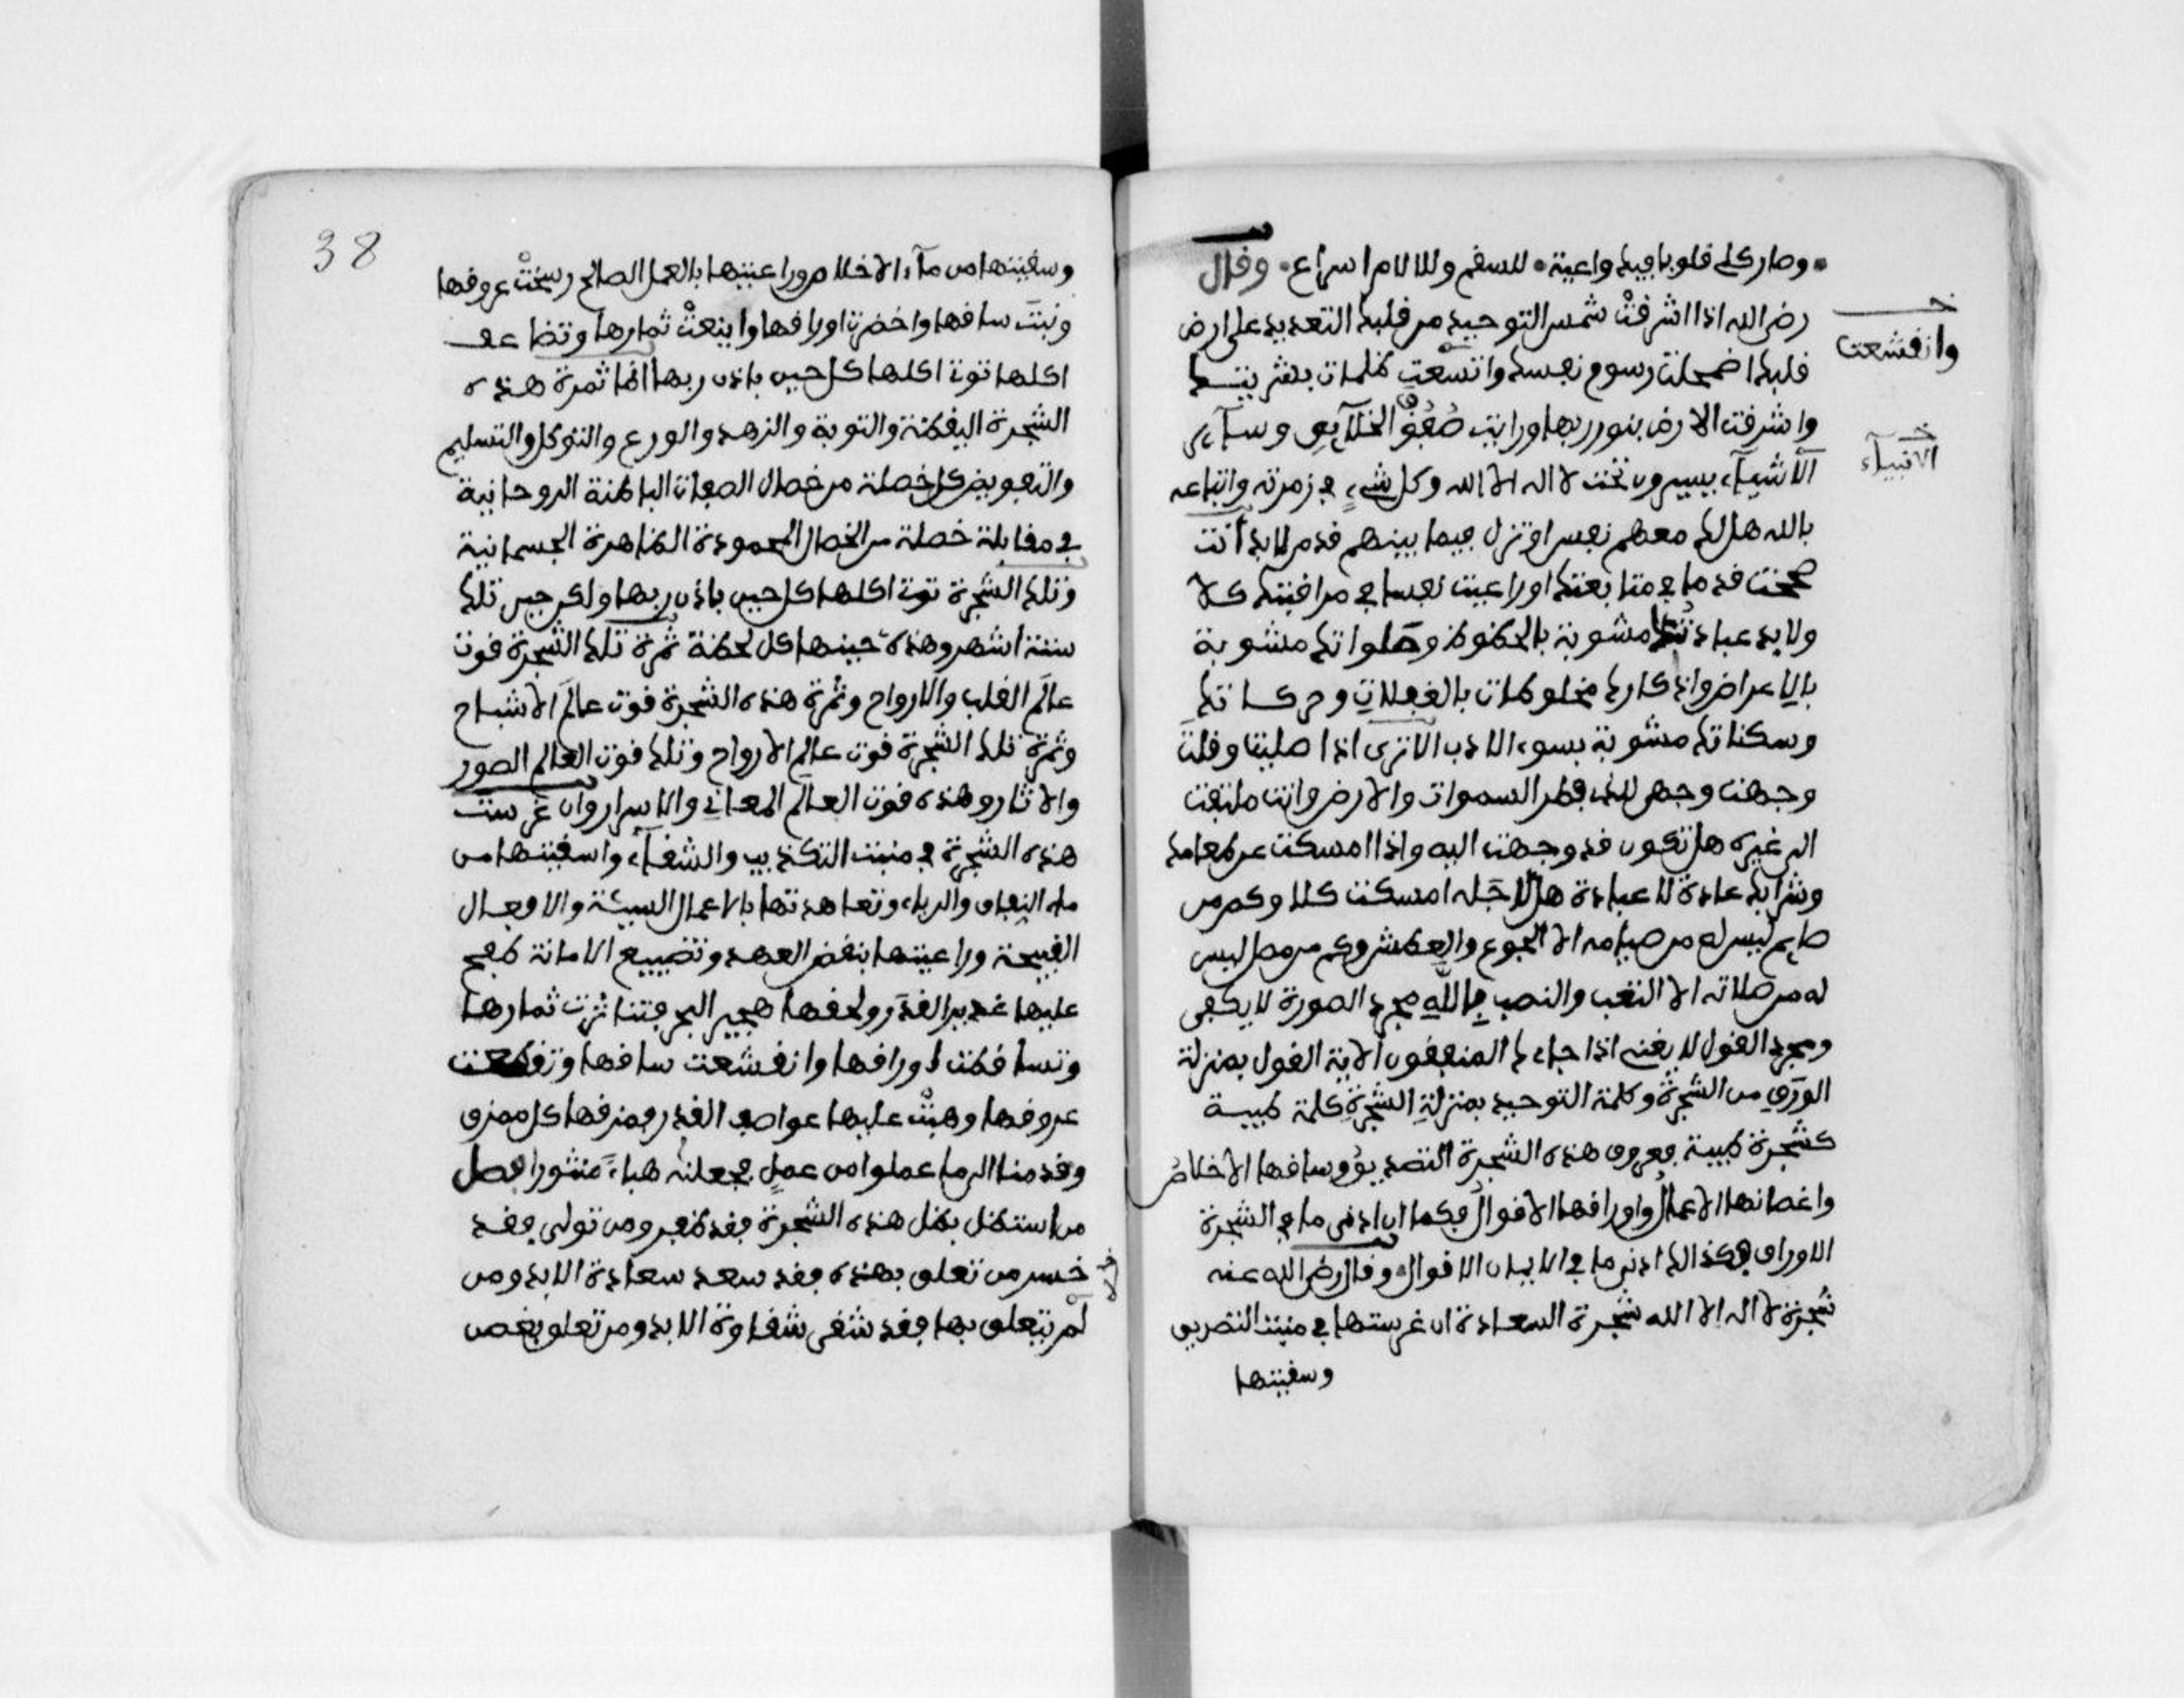 وصار كلي قلوبا فيك واعية للسقم وللالام اسراع وقال
رضي الله اذا اشرقت شمس التوحيد من فلك التعديد على ارض
قلبك اضمحلت رسوم نفسك واتسعت ظلمات بشريتك
واشرقت الارض بنور ربها ورايت صفوف الخلايق وساير
الاشياء يسيرون تحت لا اله الا الله وكل شيء في زمرته واتباعه
بالله هل لك معهم نفس او تزل فيما بينهم قدم لابد انت
صححت قدما في متابعتك او راعيت نفسا في مراقبتك كلا
ولابد عباداتك مشوبة بالحظوظ وصلواتك مشوبة
بالاعراض واذكارك مخلوطات بالغفلات وحركاتك
وسكناتك مشوبة بسوء الادب الا ترى اذا صليت وقلت
وجهت وجهي للذي فطر السموات والارض وانت ملتفت
الى غيره هل تكون قد وجهت اليه واذا امسكت عن طعامك
وشرابك عادة لا عبادة هل لاجله امسكت كلا وكم من
صايم ليس له من صيامه الا الجوع والعطش وكم من مصل ليس
له من صلاته الا التعب والنصب فبالله مجرد الصورة لا يكفي
ومجرد القول لا يغني اذا جاءك المنفقون الاية القول بمنزلة
الورق من الشجرة وكلمة التوحيد بمنزلة الشجرة كلمة طيبة
كشجرة طيبة فعروق هذه الشجرة التصديق وساقها الاخلاص
واغصانها الاعمال واوراقها الاقوال فكما ان ادنى ما في الشجرة
الاوراق فكذالك ادنى ما في الايمان الاقوال وقال رضي الله عنه
شجرة لا اله الا الله شجرة السعادة ان غرستها في منبت التصديق
وسقيتها
وانقشعت
الانبياء
38
وسقيتها من ماء الاخلاص وراعيتها بالعمل الصالح رسخت عروقها
ونبت ساقها واخضرت اوراقها واينعت ثمارها وتضاعف
اكلها توت اكلها كل حين باذن ربها اما ثمرة هذه
الشجرة اليقظة والتوبة والزهد والورع والتوكل والتسليم
والتفويض كل خصلة من خصال الصفات الباطنة الروحانية
في مقابلة خصلة من الخصال المحمودة الظاهرة الجسمانية
وتلك الشجرة توت اكلها كل حين باذن ربها ولكن حين تلك
ستة اشهر وهذه حينها كل لحظة ثمرة تلك الشجرة قوت
عالم القلب والارواح وثمرة هذه الشجرة قوت عالم الاشباح
وثمرة تلك الشجرة قوت عالم الارواح وتلك قوت العالم الصور
والاثار وهذه قوت العالم المعاني والاسرار وان غرست
هذه الشجرة في منبت التكذيب والشقاء واسقيتها من
ماء النفاق والرياء وتعاهدتها بالاعمال السيئة والافعال
القبيحة وراعيتها بنقض العهد وتضييع الامانة طفح
عليها غدير الغدر ولحقها هجير الهجر فتناثرت ثمارها
وتساقطت اوراقها وانقشعت ساقها وتقطعت
عروقها وهبت عليها عواصف القدر فمزقها كل ممزق
وقدمنا الى ما عملوا من عمل فجعلنه هباء منثورا فصل
من استظل بظل هذه الشجرة فقد ظفر ومن تولى فقد
خسر من تعلق بهذه فقد سعد سعادة الابد ومن
لم يتعلق بها فقد شقى شقاوة الابد ومن تعلق بغصن